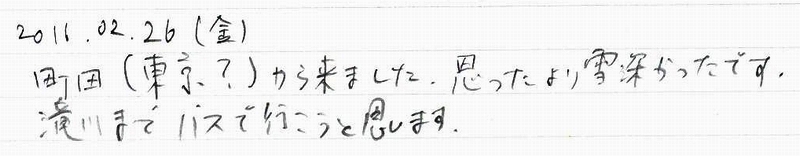 2016.02.26(金)
町田(東京?)から来ました.思ったより雪深かったです.
滝川までバスで行こうと思います.